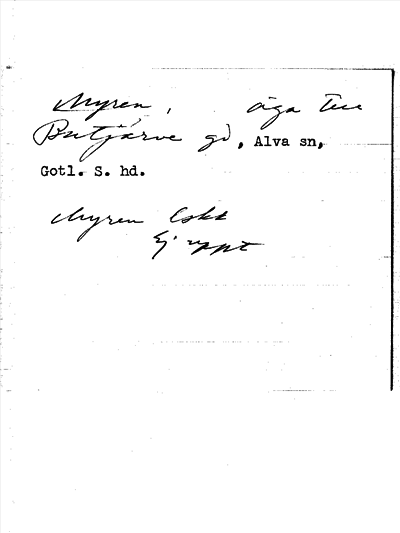 Myren, äga till
Butjärve gd, Alva sn,
Gotl. S. hd.
Myren Eskt
Ej uppt